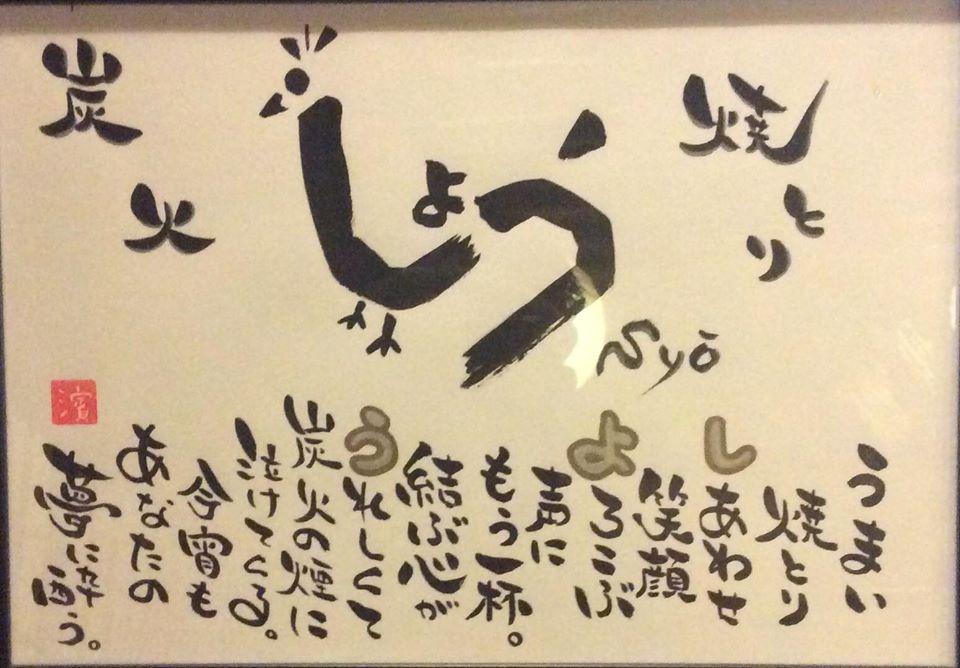 炭火
しょう
焼とり
Syō
うまい
焼とり
しあわせ
笑顔
よろこぶ
声に
もう一杯。
結ぶ心が
うれしくて
炭火の煙に
泣けてくる。
今宵も
あなたの
夢に酔う。
濱